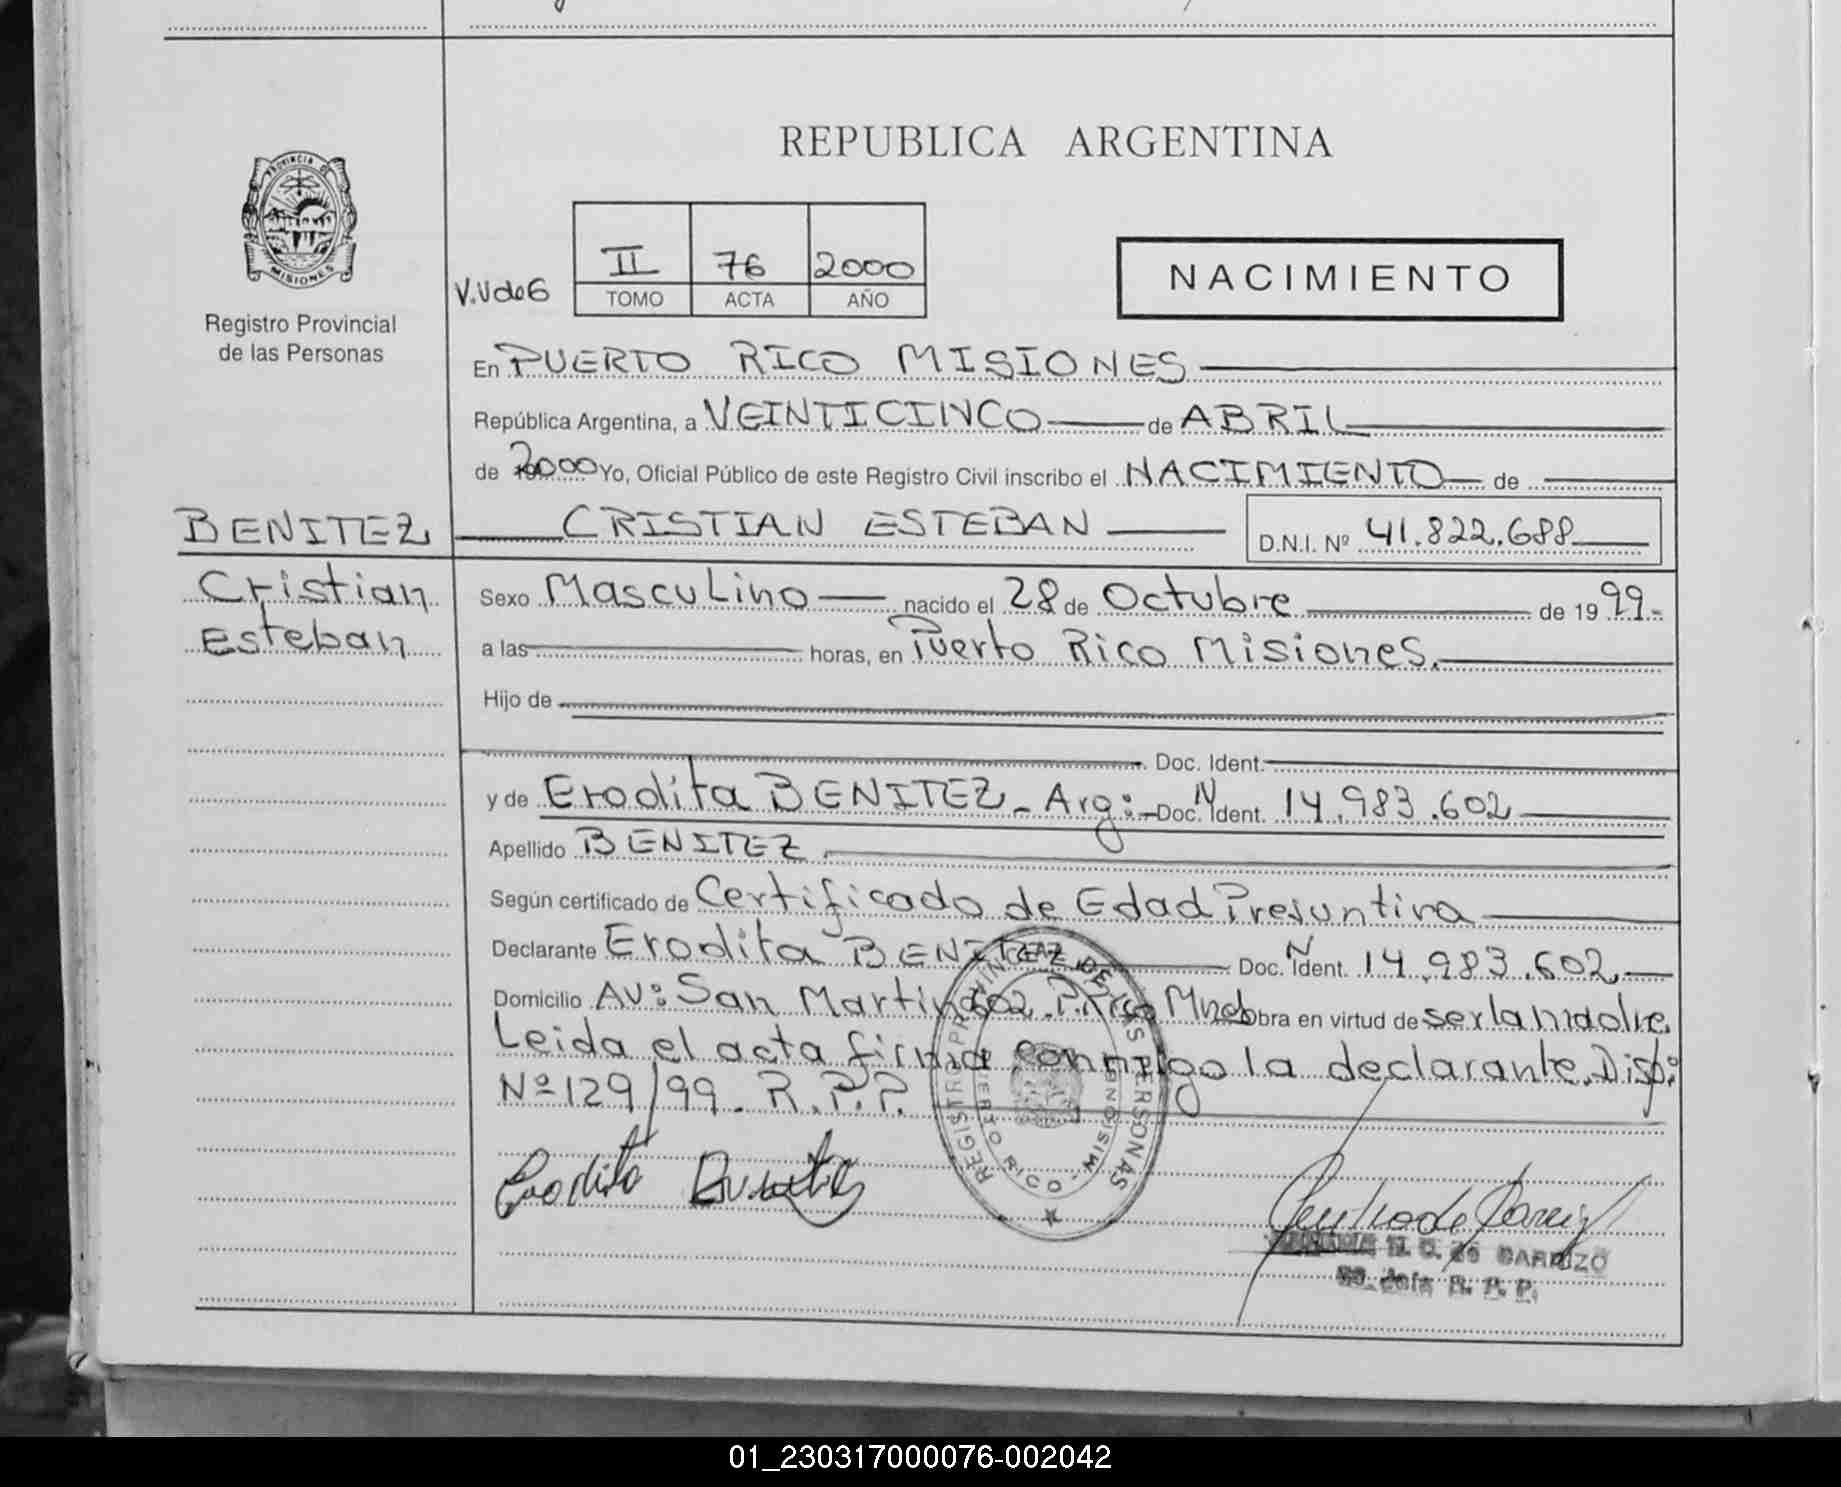 REPUBLICA ARGENTINA
PROVINCIA DE
MISIONES
Registro Provincial
de las Personas
II 76 2000
TOMO ACTA AÑO
NACIMIENTO
En PUERTO RICO MISIONES
República Argentina, a VEINTICINCO de ABRIL
de 2000 Yo, Oficial Público de este Registro Civil inscribo el NACIMIENTO de
BENITEZ CRISTIAN ESTEBAN D.N.I. Nº 41.822.688
Cristian Sexo Masculino nacido el 28 de Octubre de 19 99.-
Esteban a las horas, en Puerto Rico Misiones.
Hijo de
Doc. Ident.
y de Erodita BENITEZ - Arg: - Doc. N Ident. 14.983.602
Apellido BENITEZ
Según certificado de Certificado de Edad Presuntiva
Declarante Erodita BENITEZ Doc. N Ident. 14.983.602
Domicilio Av: San Martin 602 P. Rico Mnes Obra en virtud de ser la madre.
Leida el acta firma conmigo la declarante. Disp:
Nº 129/99. R.P.P.
REGISTRO PROVINCIAL DE LAS PERSONAS
PUERTO RICO - MISIONES
Erodita Benitez
N. C. de CARRIZO
Jefe R. P. P.
01_230317000076-002042